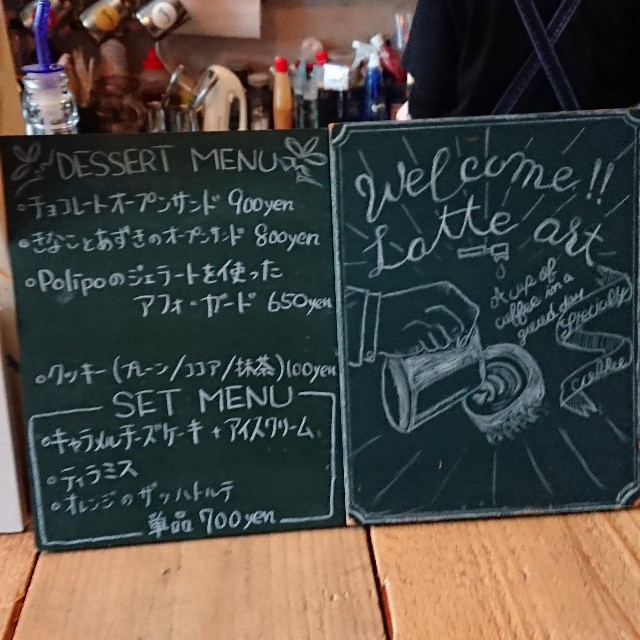 DESSERT MENU
・チョコレートオープンサンド 900yen
・きなことあずきのオープンサンド 800yen
・Polipoのジェラートを使った
アフォガード 650yen
・クッキー(プレーン/ココア/抹茶)100yen
SET MENU
・キャラメルチーズケーキ+アイスクリーム
・ティラミス
・オレンジのザッハトルテ
単品700yen
Welcome!!
Latte art
A cup of
coffee in a
good day
Specialty
coffee